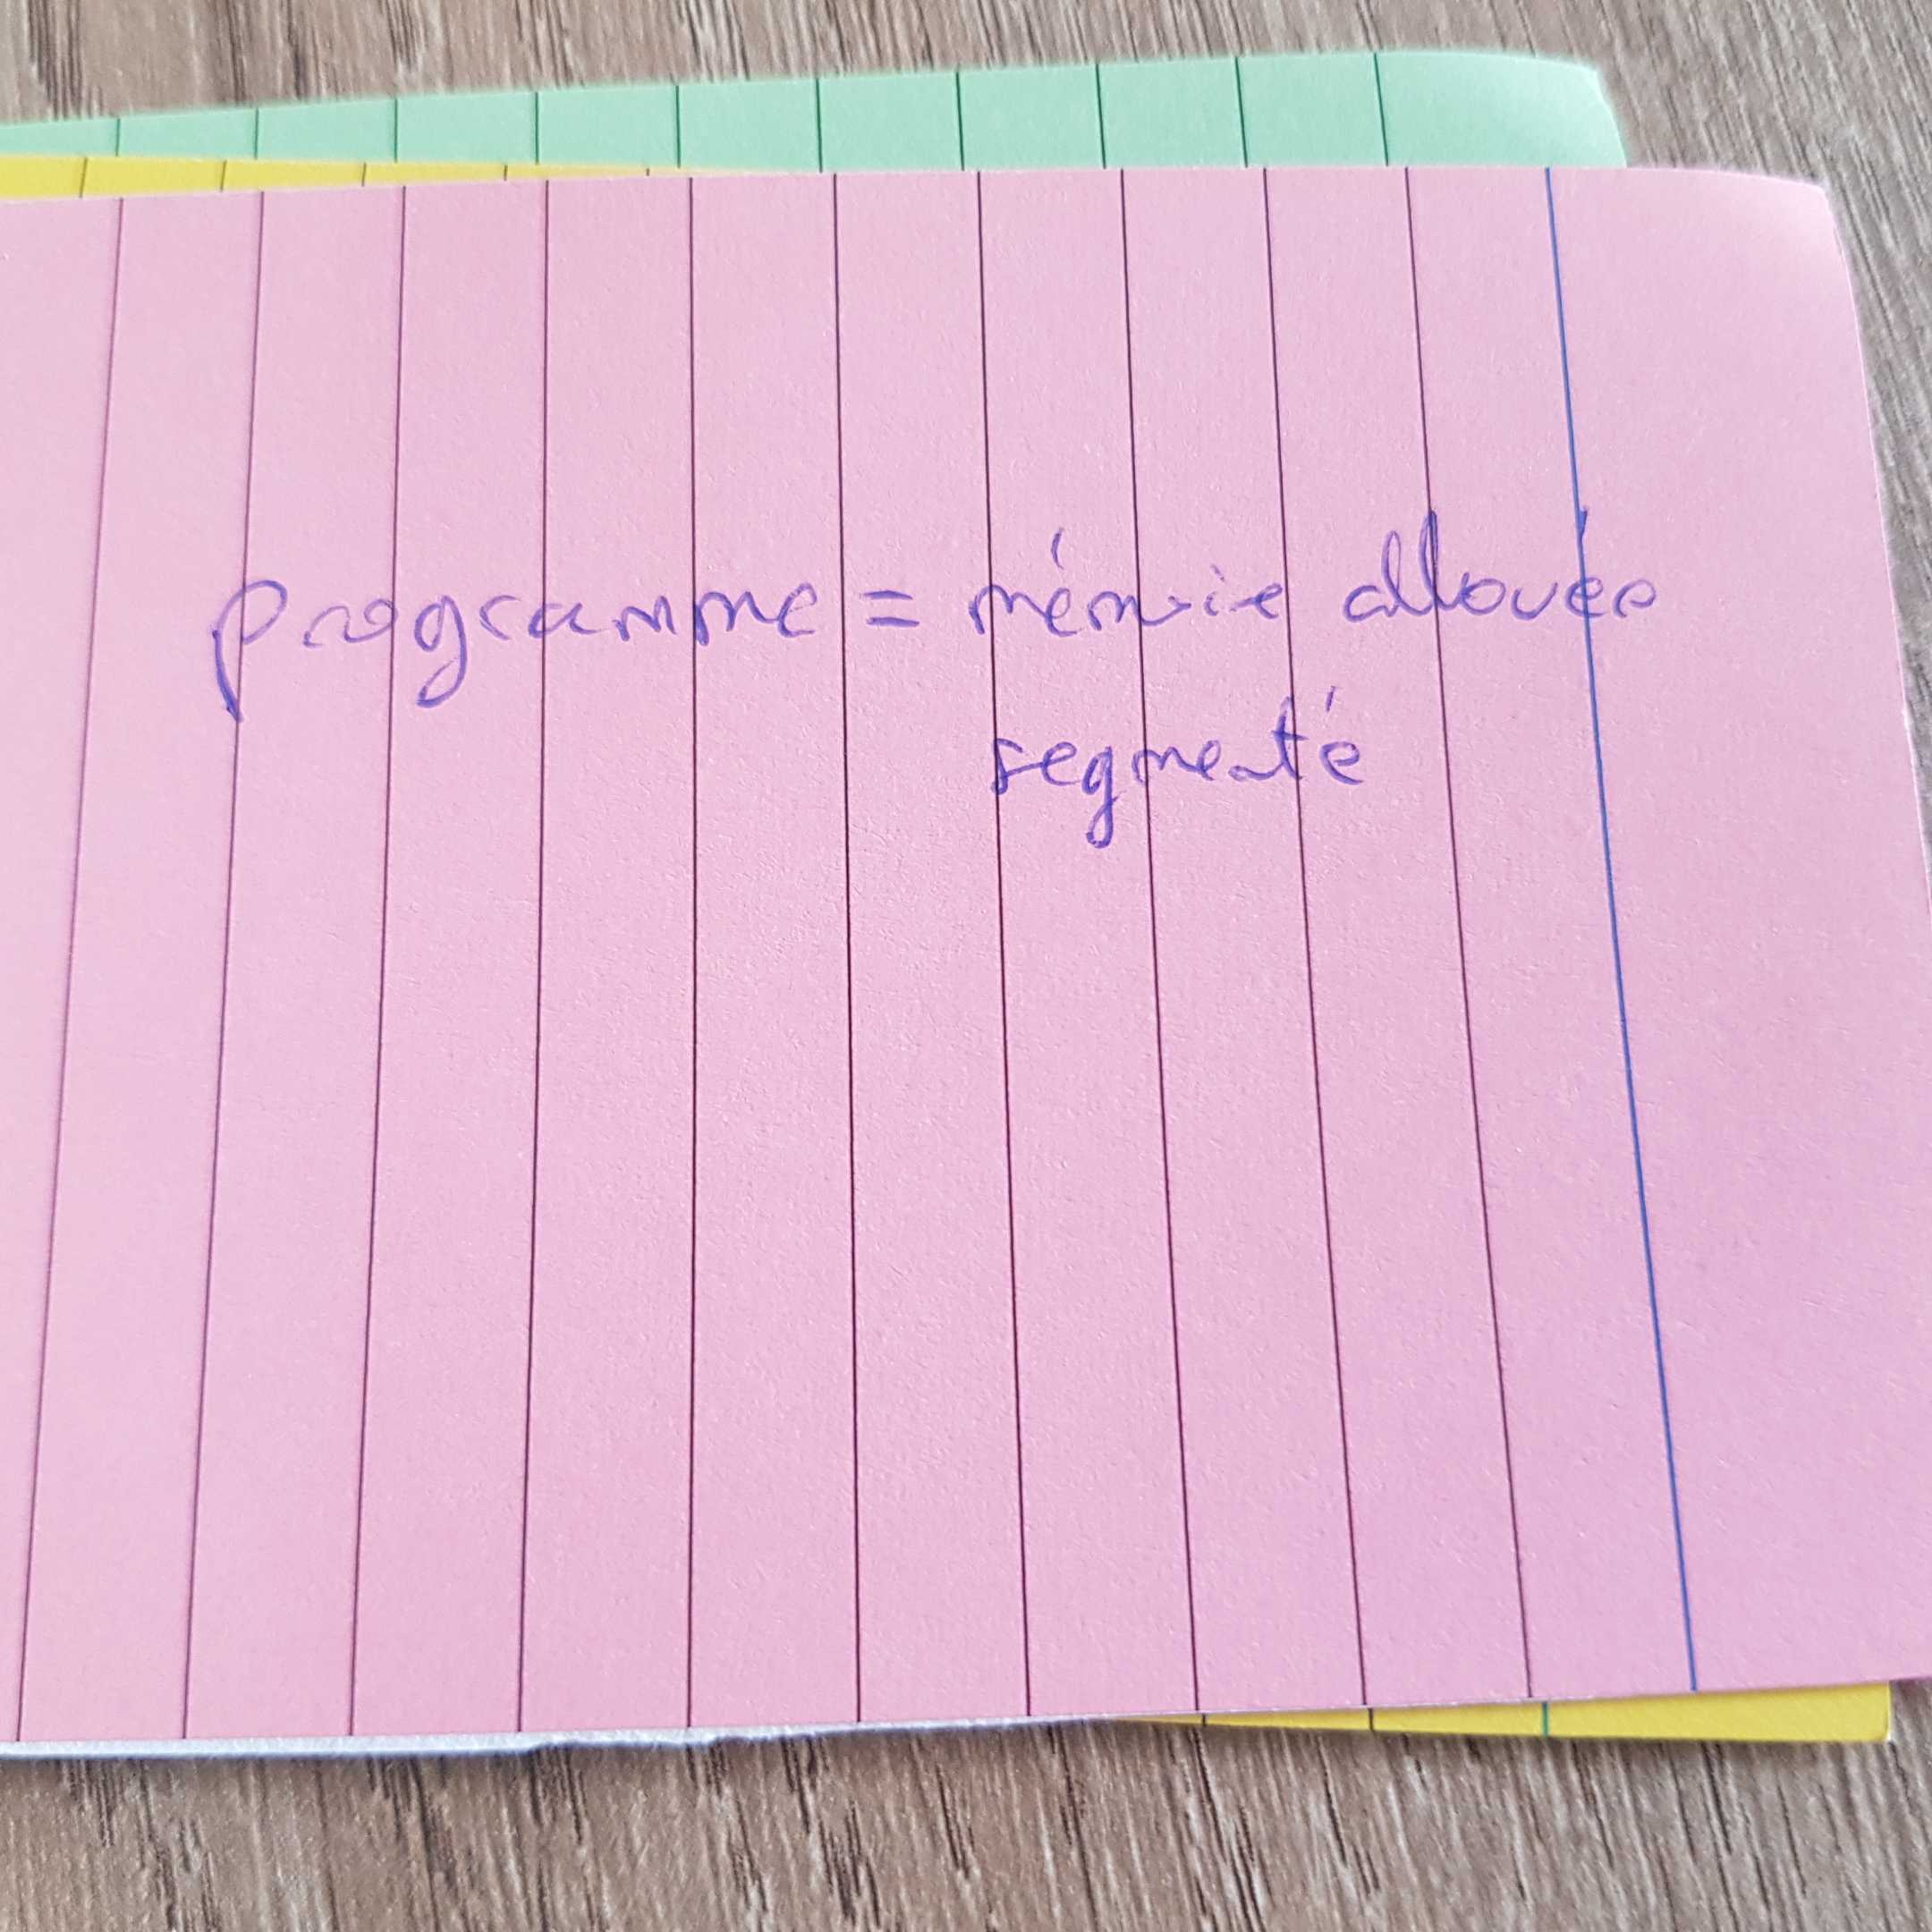 programme = mémoire allouée
segmenté